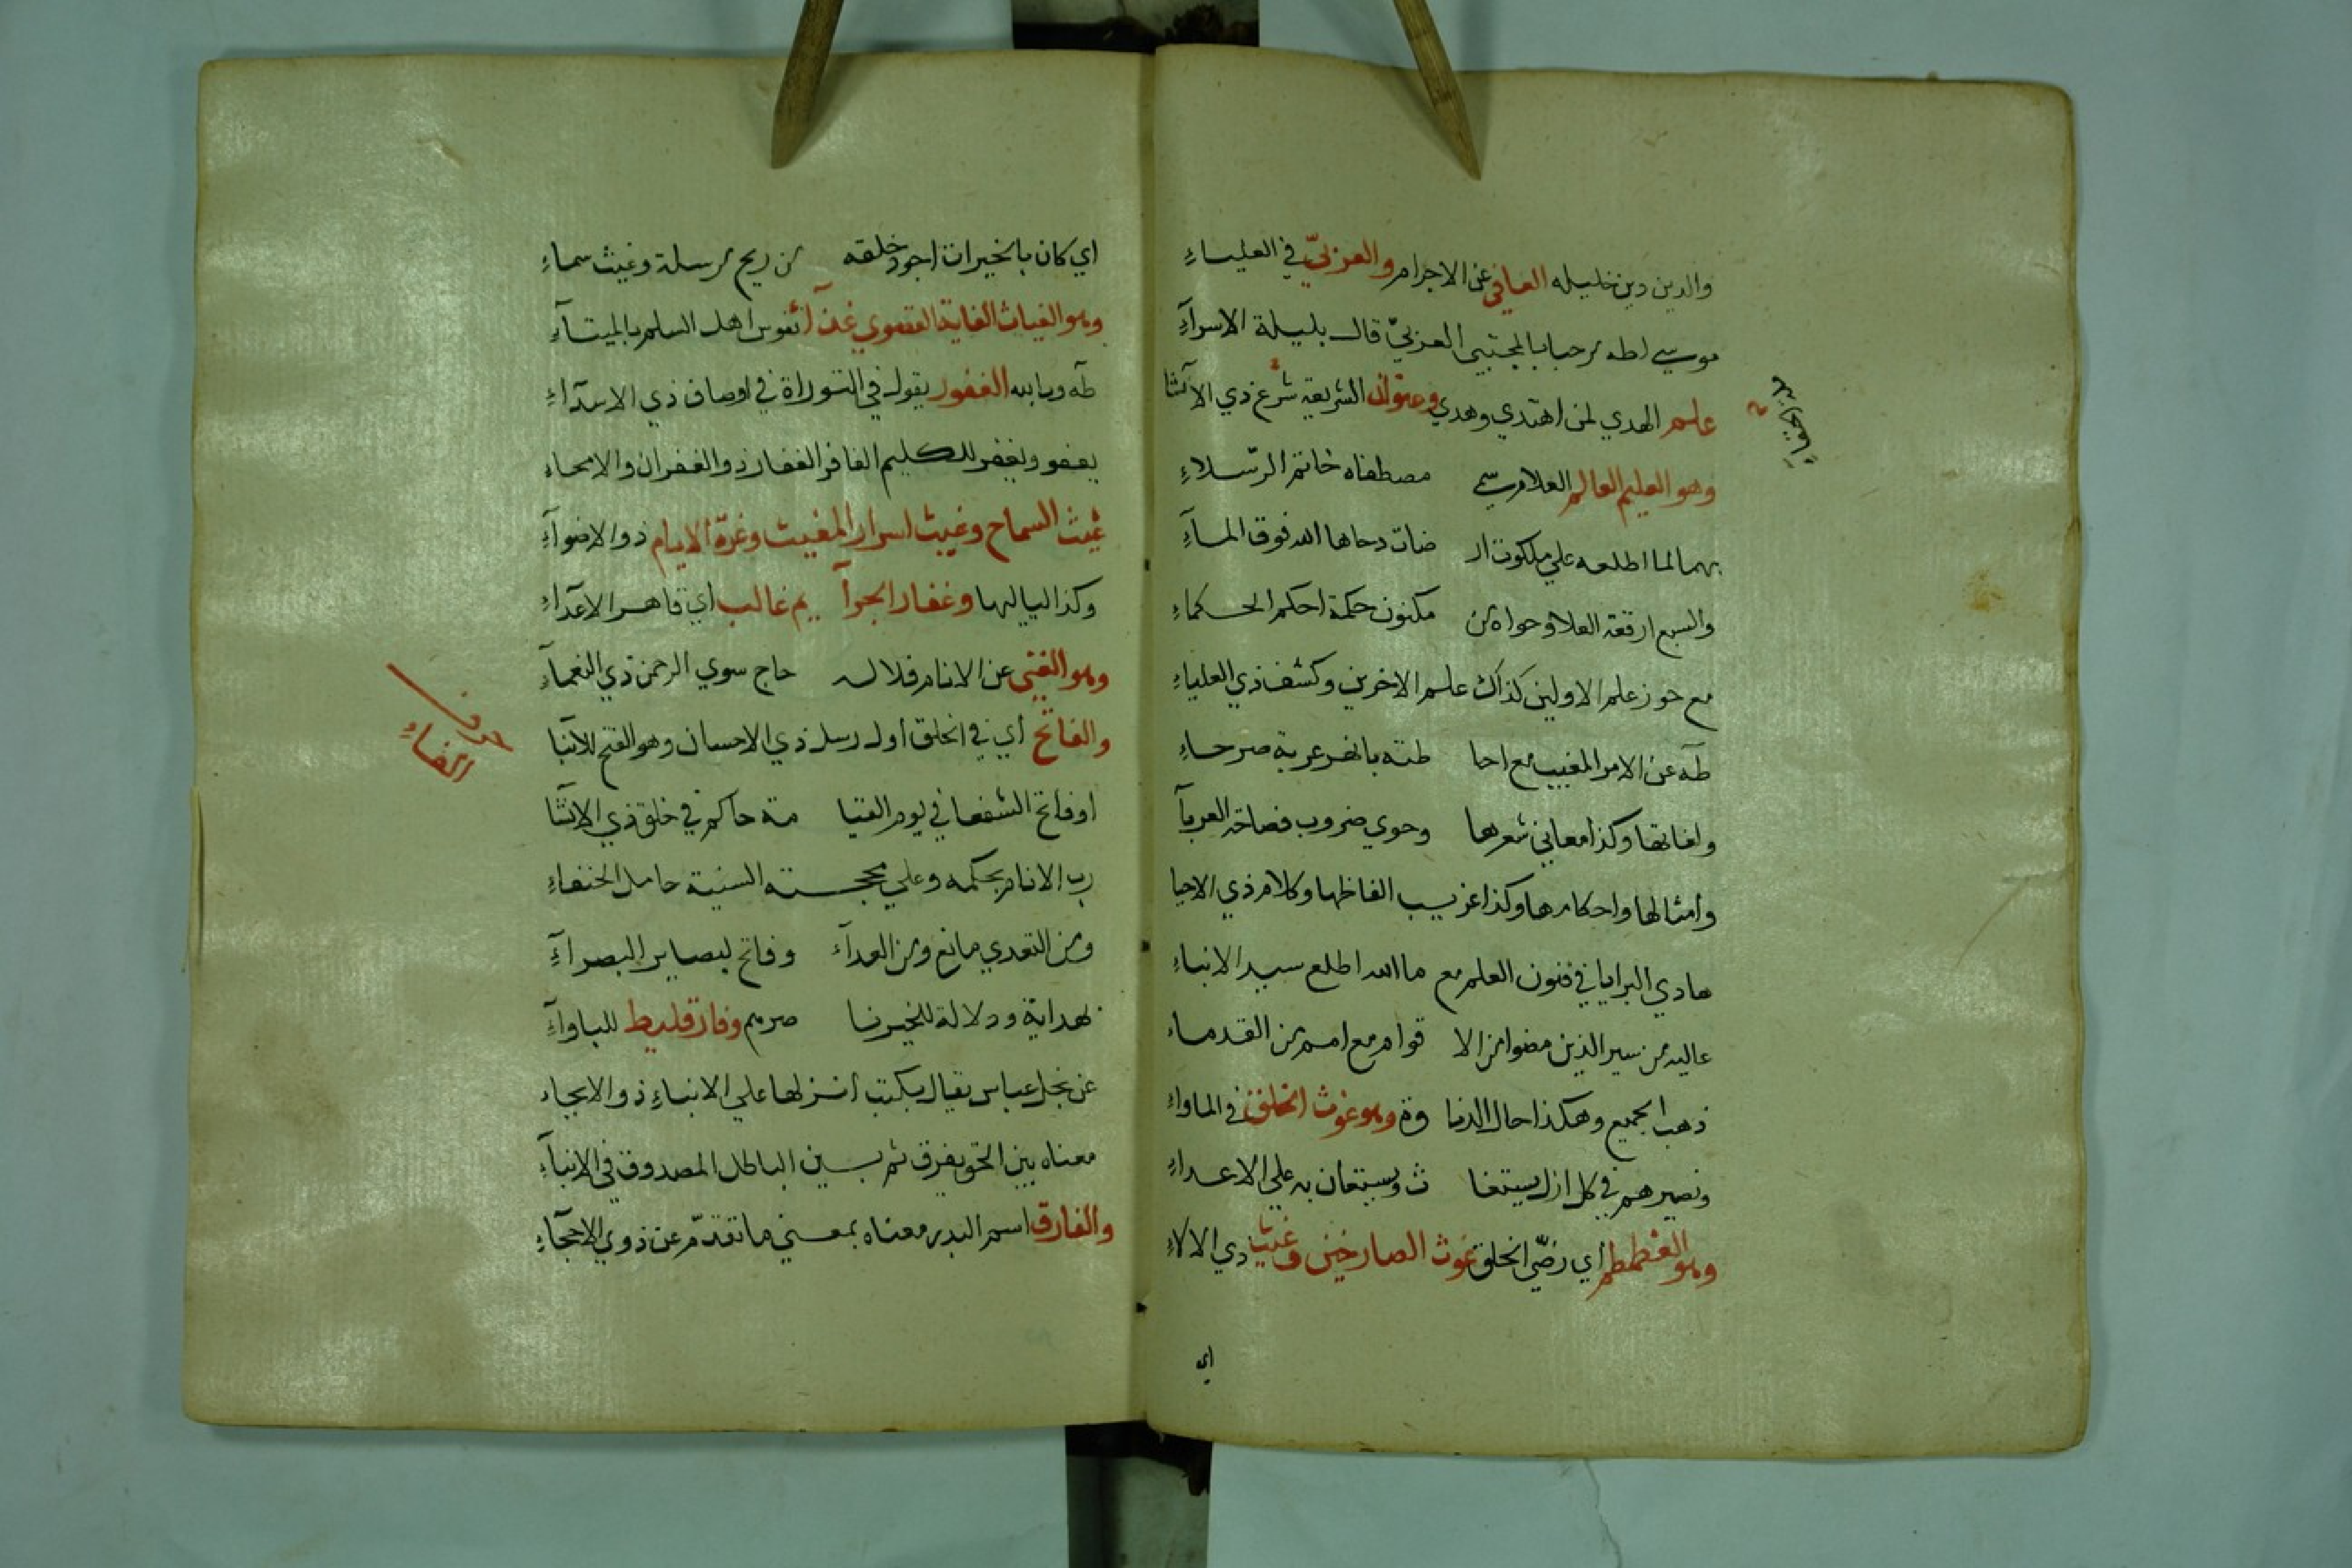 والدين دين خليله العافي عن الاجرام والعربيّ في العلياءِ
موسي لطه مرحبا بالمجتبي العربيّ قال بليلة الاسرآءِ
علم الهدي لمن اهتدي وهدي وعنوان الشريعة شرع ذي الآثنا
وهو العليم العالم العلامر سمي مصطفاه خاتم الرّسلاءِ
بهما لما اطلعه علي ملكوت ار ضات دحاها الله فوق المآءِ
والسبع ارقعة العلا وحواه من مكنون حكمة احكم الحكماءِ
مع حوز علم الاولين كذاك علم الاخرين وكشف ذي العلياءِ
طه عن الامر المغيب مع احا طته بانحر عربة صرحاءِ
ولغاتها وكذا معاني شعرها وحوي ضروب فصاحة العربآ
وامثالها واحكامها وكذا غريب الفاظها وكلام ذي الاحيا
هادي البرايا في فنون العلم مع ما الله اطلع سيد الانباءِ
عاليه من سير الذين مضوا من الا قوام مع امم من القدماء
ذهب الجميع وهكذا حال الدنا وة وهو غوث الخلق في الماواءِ
ونصيرهم في كل ازل يستغا ث ويستعان به علي الاعداءِ
وهو الغطمطم اي رضّي الخلق غوث الصارخين وغيث ذي الالاءِ
اي
اي كان بالخيرات اجود خلقه من ريح مرسلة وغيث سماءِ
وهو الغياث الغاية القصوي غدآ لنفوس اهل السلم بالميتآءِ
طه وربا بله الغفور يقول في التوراة في اوصاف ذي الاسدآءِ
يعفو ويغفر للكليم الغافر الغفار ذو الغفران والامحاءِ
غيث السماح وغيث اسرار المغيث وغرّة الايام ذو الاضوآءِ
وكذا لياليها وغفار الجرآ يم غالب اي قاهر الاعدآءِ
وهو الغني عن الانام فلا له حاج سوي الرحمن ذي النعمآءِ
حرف
الفاءِ
والفاتح اي في الخلق اول رسل ذي الاحسان وهو الفتح للآنبا
او فاتح الشفعا في يوم القيا مة حاكم في خلق ذي الآثنا
رب الانام بحكمه وعلي محجته السنية حامل الحنفاءِ
ومن التعدي مانع ومن العدآء وفاتح لبصاير البصرآءِ
لهداية ودلالة للخير نا صرهم وفارقليط للباوآءِ
عن نجل عباس يقال بكتب انزلها علي الانباءِ ذو الايجاء
معناه بين الحق يفرق ثم بين الباطل المصدوق في الانبآءِ
والفارق اسم البدر معناه بمعني ما تقدّم عن ذوي الاحجآءِ